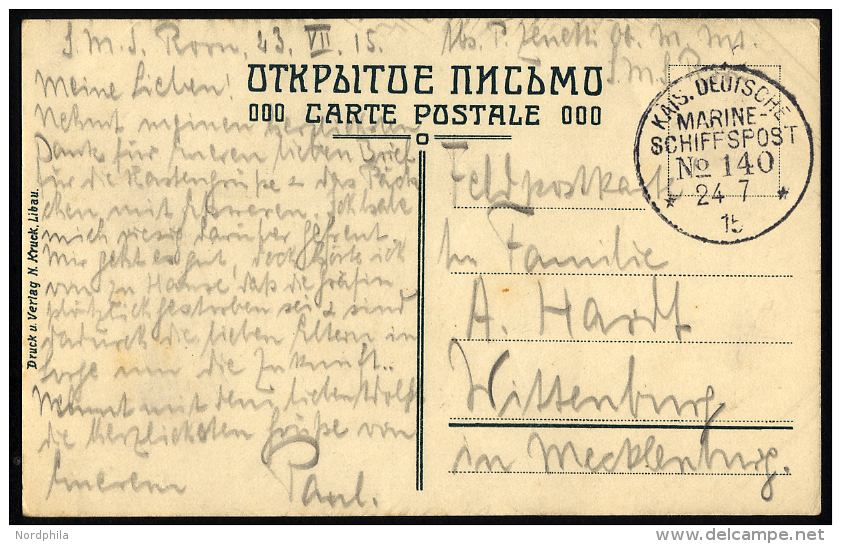 S. M. S. Roon, 23. VII. 15.
Abs. P. Zenetti Ob. M. Mt.
S. M. S.
Meine Lieben!
Nehmt meinen herzlichsten
Dank für Eueren lieben Brief
für die Kartengrüße & das Päck
chen mit Ich habe
mich riesig darüber gefreut.
Mir geht es gut, doch hörte ich
von zu Hause, daß die Gräfin
plötzlich gestorben sei & sind
dadurch die lieben Eltern in
Sorge um die Zukunft..
Nehmt mit dem lieben Adolf
die herzlichsten Grüße von
Euerem
Paul.
ОТКРЫТОЕ ПИСЬМО
CARTE POSTALE
KAIS. DEUTSCHE
MARINE-
SCHIFFSPOST
No 140
* 24 7 *
15
Feldpostkarte
Familie
A. Hardt
Wittenburg
in Mecklenburg.
Druck u. Verlag N. Kruck, Libau.
Nordphila
delcampe.net